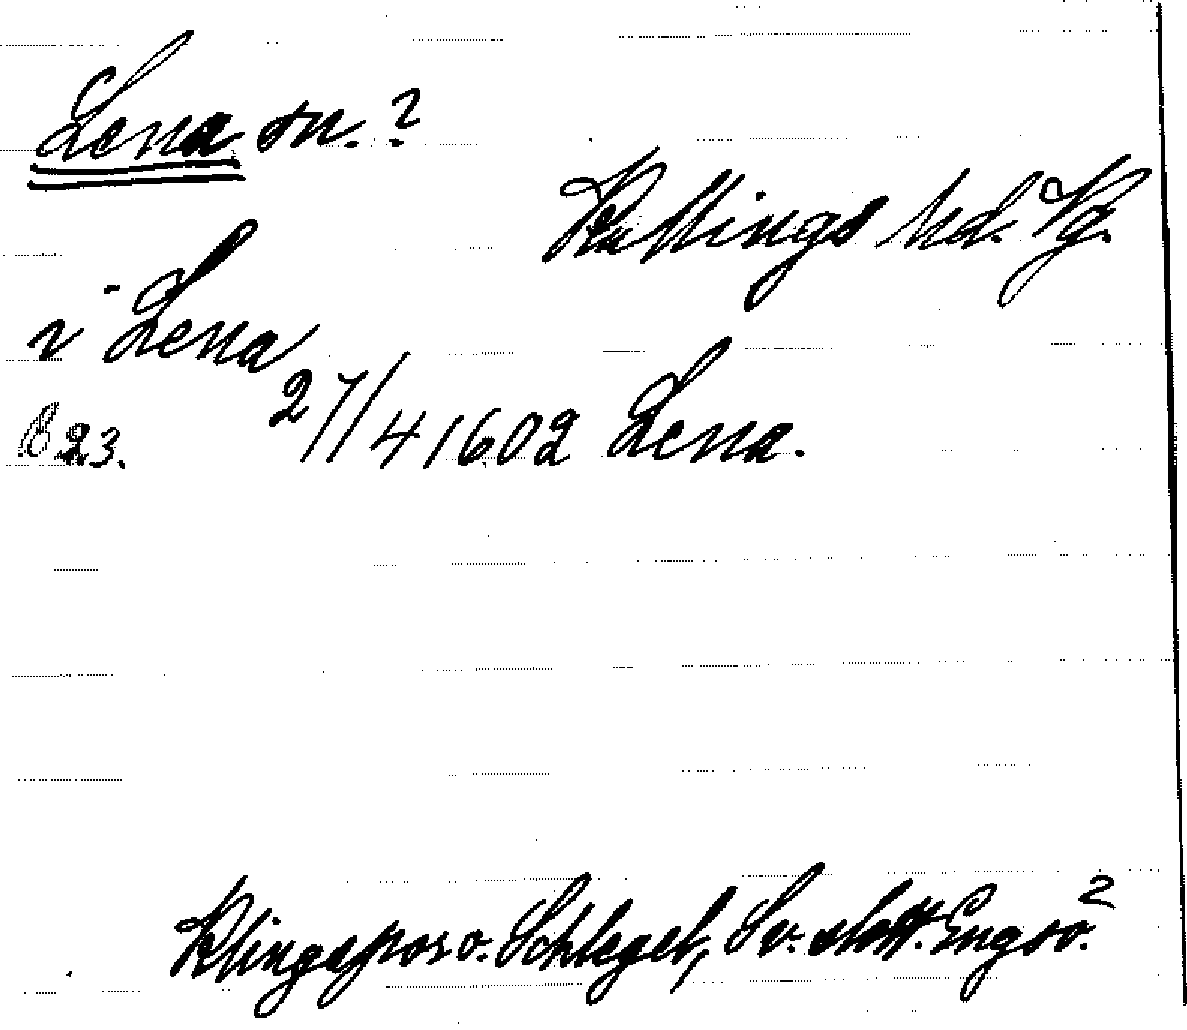 Lena sn.?
Kullings hd. Vg.
i Lena
B 23. 27/4 1602 Lena.
Klingspor o. Schlegel, Sv. slott. Engsö. 2